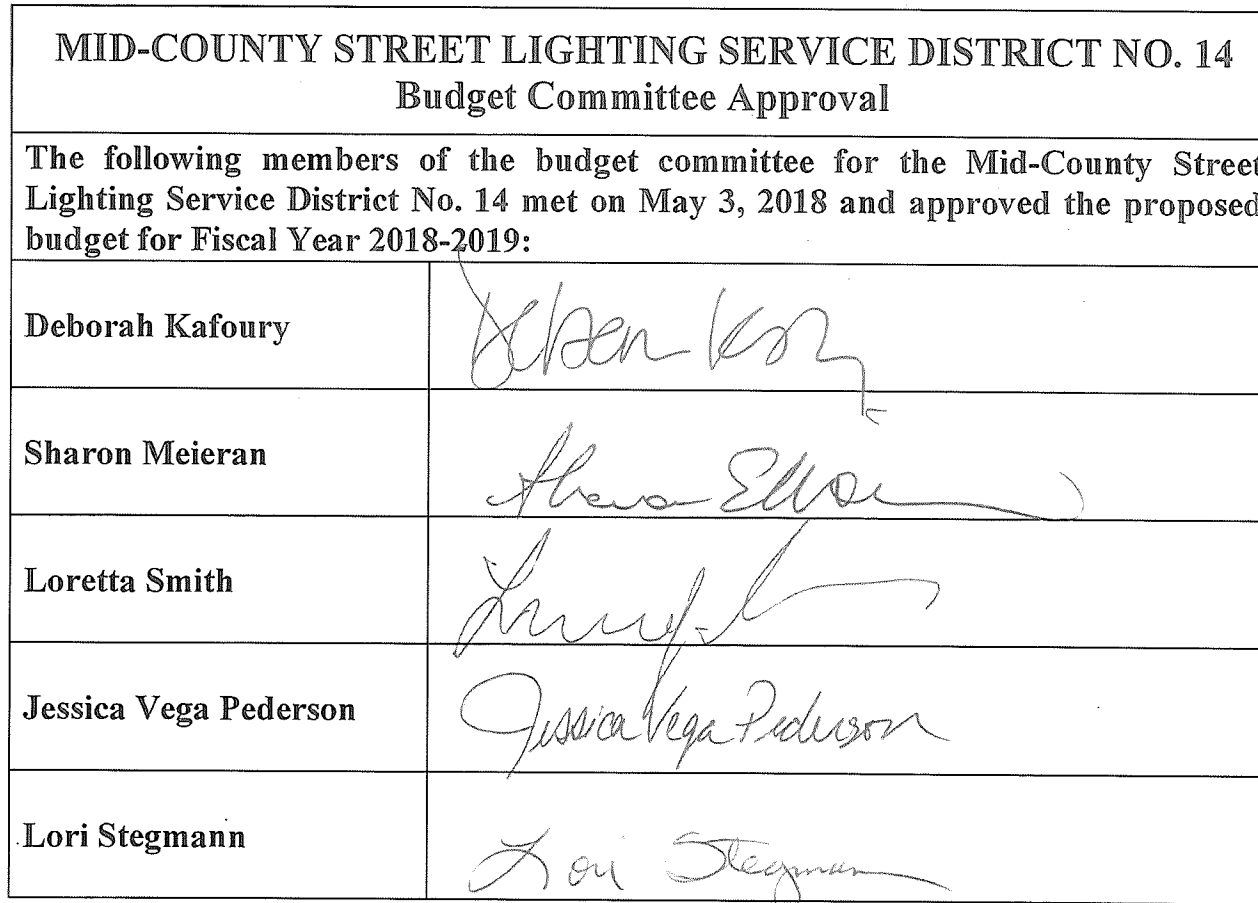 MID-COUNTY STREET LIGHTING SERVICE DISTRICT NO. 14
Budget Committee Approval
The following members of the budget committee for the Mid-County Street
Lighting Service District No. 14 met on May 3, 2018 and approved the proposed
budget for Fiscal Year 2018-2019:
Deborah Kafoury
Sharon Meieran
Loretta Smith
Jessica Vega Pederson Jessica Vega Pederson
Lori Stegmann Lori Stegmann